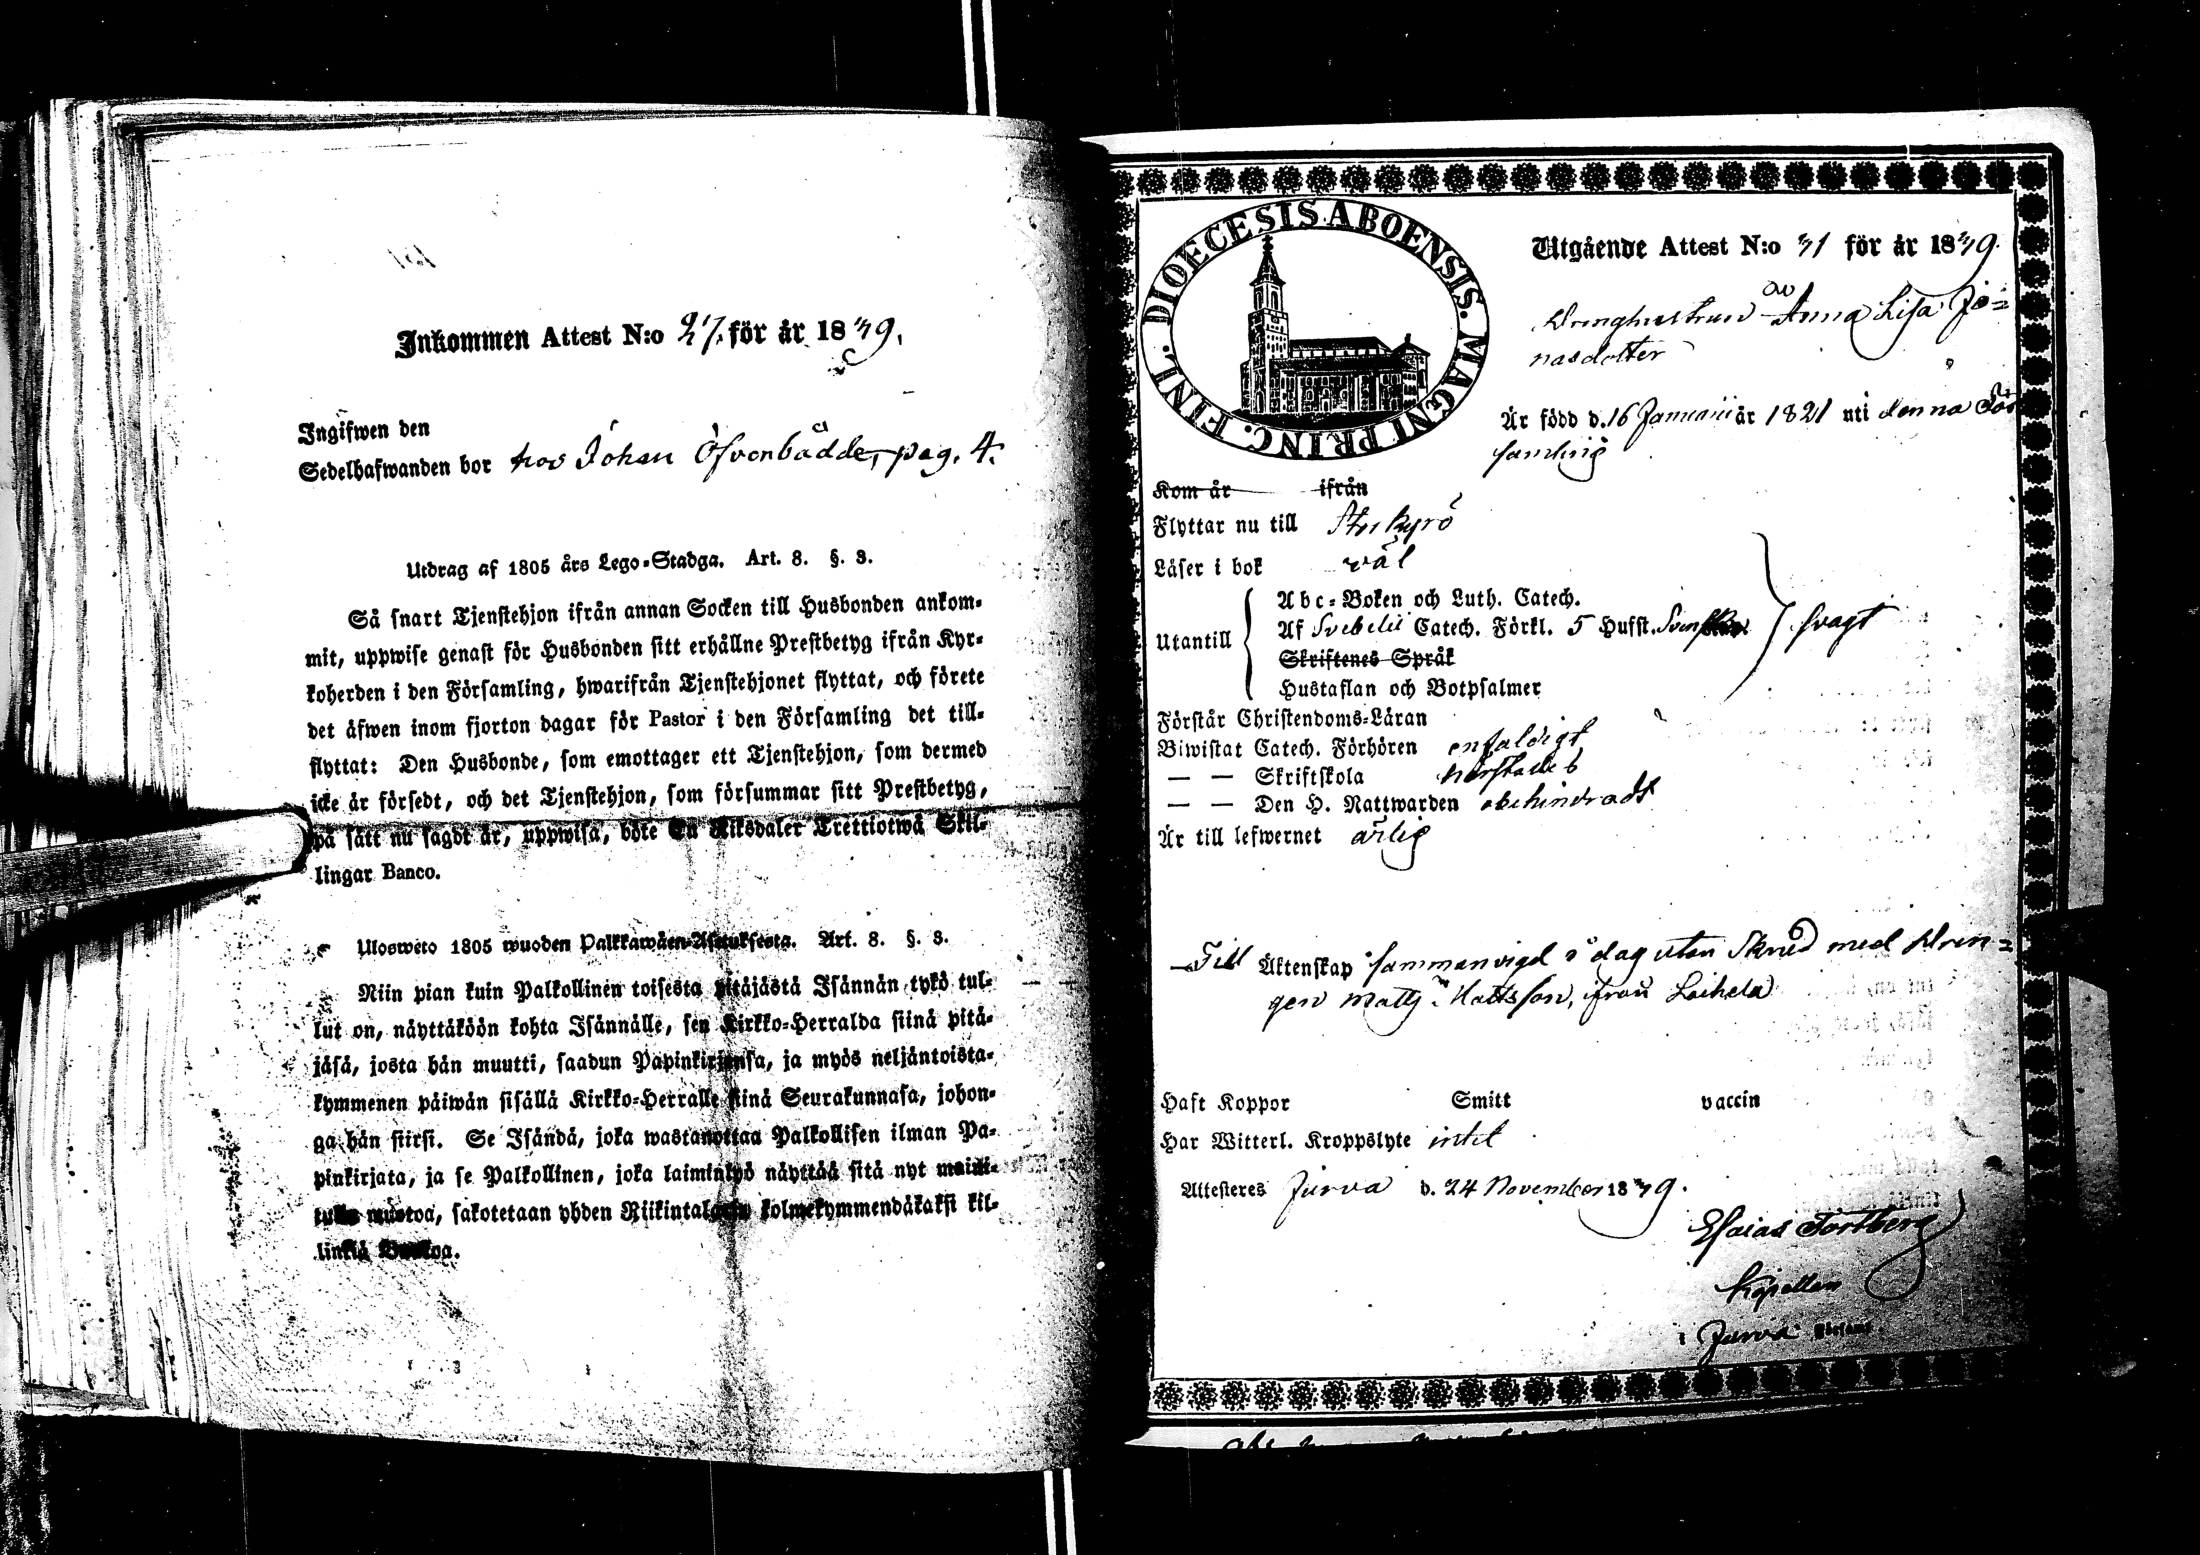 Inkommen Attest N:o 27. för år 1849.
Ingifwen den
Sedelhafwanden bor hos Johan Öfvenbädde, pag. 4.
Utdrag af 1805 års Lego-Stadga. Art. 8. §. 3.
Så snart Tjenstehjon ifrån annan Socken till Husbonden ankom-
mit, uppwise genast för Husbonden sitt erhållne Prestbetyg ifrån Kyr-
koherden i den Församling, hwarifrån Tjenstehjonet flyttat, och förete
det äfwen inom fjorton dagar för Pastor i den Församling det till-
flyttat: Den Husbonde, som emottager ett Tjenstehjon, som dermed
icke är försedt, och det Tjenstehjon, som försummar sitt Prestbetyg,
på sätt nu sagdt är, uppwisa, böte En Riksdaler Trettiotwå Skil-
lingar Banco.
Ulosweto 1805 wuoden Palkkawäen-Asetuksesta. Art. 8. §. 3.
Niin pian kuin Palkollinen toisesta pitäjästä Isännän tykö tul-
lut on, näyttäköön kohta Isännälle, sen Kirkko-Herralda siinä pitä-
jäsä, josta hän muutti, saadun Papinkirjansa, ja myös neljäntoista-
kymmenen päiwän sisällä Kirkko-Herralle siinä Seurakunnasa, johon-
ga hän siirsi. Se Isändä, joka wastanottaa Palkollisen ilman Pa-
pinkirjata, ja se Palkollinen, joka laiminlyö näyttää sitä nyt mainit-
tulla muotoa, sakotetaan yhden Riikintalarin kolmekymmendäkaksi kil-
linkiä Bankoa.
DIOECESIS ABOENSIS. MAGNI PRINC. FINL.
Utgående Attest N:o 41 för år 1849.
Drenghustrun Anna Lisa Jo=
nasdotter
Är född d. 16 Januarii år 1821 uti denna För
samling
Kom år ifrån
Flyttar nu till Storkyrö
Läser i bok väl
Abc-Boken och Luth. Catech.
Utantill Af Svebelii Catech. Förkl. 5 Hufst. svagt
Skriftenes Språk
Hustaflan och Botpsalmer
Förstår Christendoms-Läran
Biwistat Catech. Förhören enfaldigt
— — Skriftskola
— — Den H. Nattwarden obehindradt
Är till lefwernet ärlig
Till Äktenskap sammanvigd i dag utan Skrud med Dren=
gen Matts Mattsson, ifrån Laihela
Haft Koppor Smitt vaccin
Har Witterl. Kroppslyte intet
Attesteres Jurva d. 24 November 1849.
Esaias Fortberg
Kapellan
i Jurva Församl.